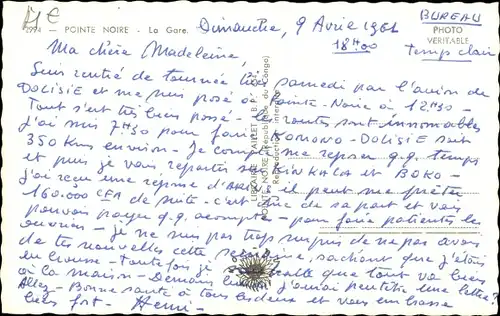 1€
2994 - POINTE NOIRE - La Gare.
Dimanche, 9 Avril 1961
18H00
BUREAU
PHOTO
VÉRITABLE
temps clair
Ma chère Madeleine,
Suis rentré de tournée hier samedi par l'avion de
DOLISIE et me suis posé à Pointe-Noire à 12H30 -
Tout s'est très bien passé - les routes sont innommables
j'ai mis 7H30 pour faire KOMONO - DOLISIE soit
350 Kms environ - Je compte me reposer q.q. temps
et puis je vais repartir sur KINKALA et BOKO -
j'ai reçu une réponse d' il peut me prêter
160.000 CFA de suite - c'est de sa part et vais
pouvoir payer q.q. acomptes - pour faire patienter les
ouvriers - Je ne suis pas trop surpris de ne pas avoir
de tes nouvelles cette semaine, sachant que j'étais
en brousse - Toutefois je que tout va bien
à la maison - Demain lundi j'aurai peut être une lettre ?
Allez - Bonne santé à tous les deux et vous embrasse
bien fort - Henri -
LIBRAIRIE PAILLET
POINTE-NOIRE (République du Congo)
Reproduction interdite